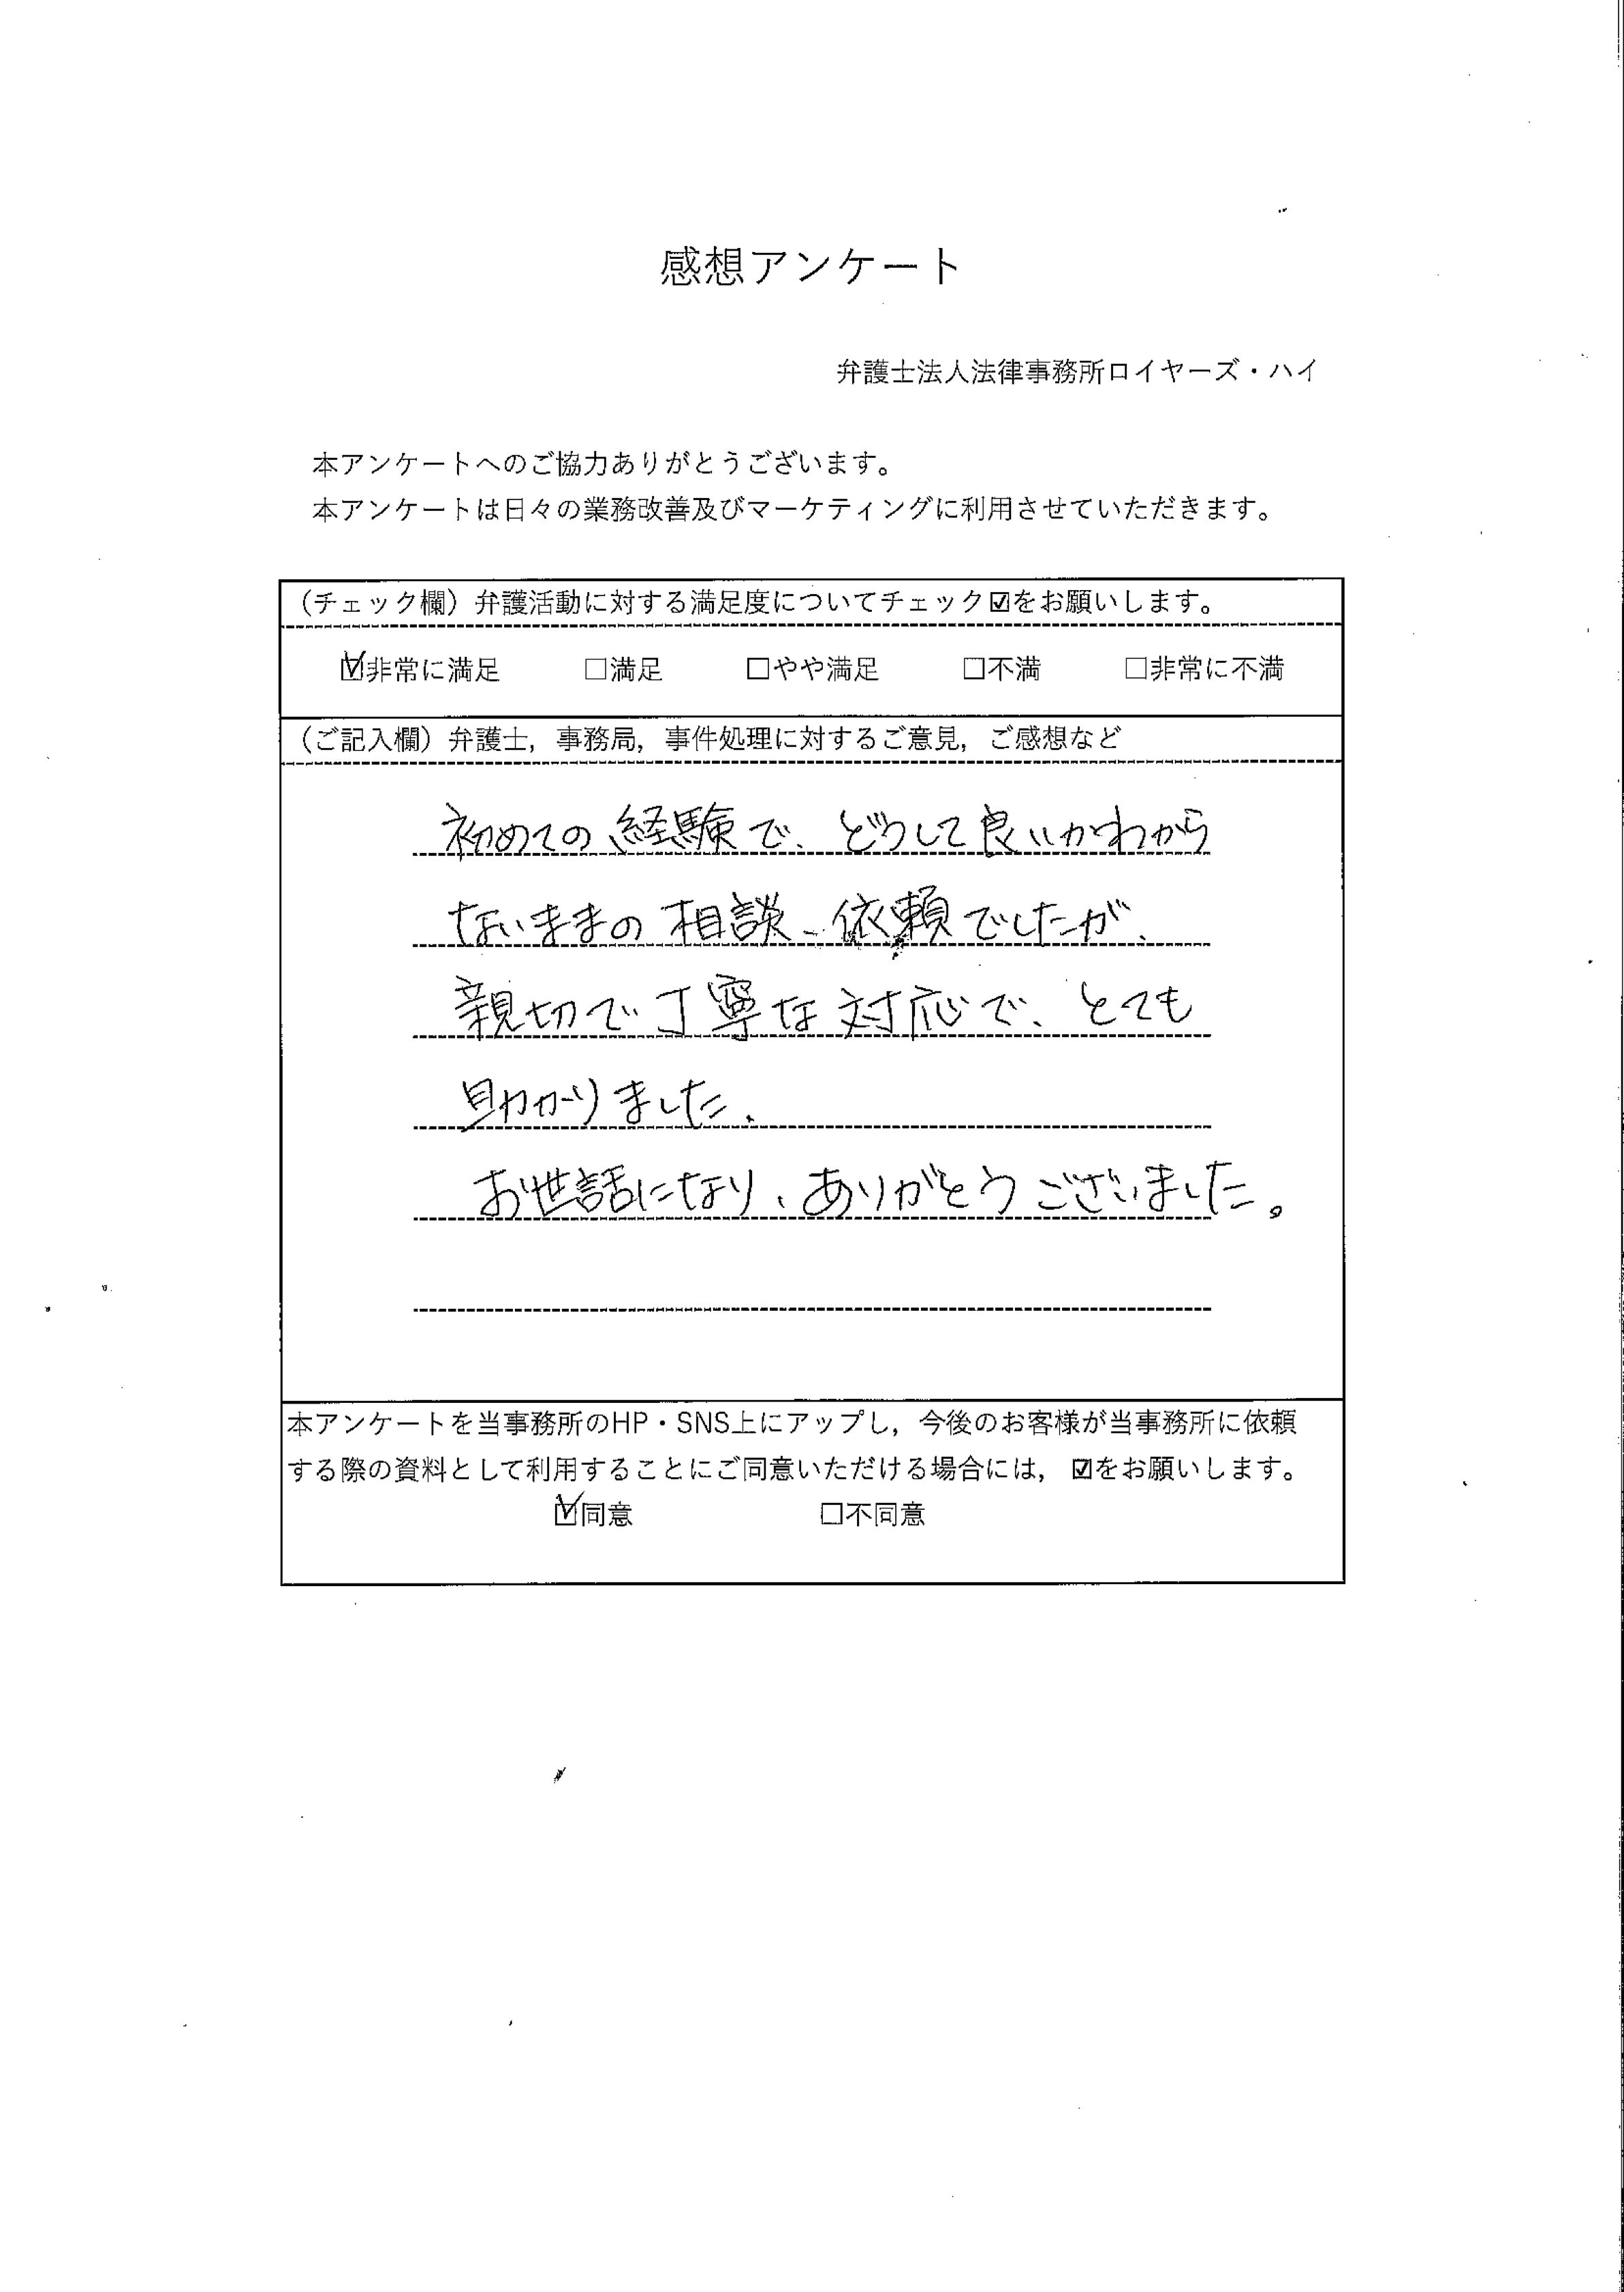 感想アンケート
弁護士法人法律事務所ロイヤーズ・ハイ
本アンケートへのご協力ありがとうございます。
本アンケートは日々の業務改善及びマーケティングに利用させていただきます。
（チェック欄）弁護活動に対する満足度についてチェック☑をお願いします。
☑非常に満足 □満足 □やや満足 □不満 □非常に不満
（ご記入欄）弁護士，事務局，事件処理に対するご意見，ご感想など
初めての経験で、どうして良いかわから
ないままの相談、依頼でしたが、
親切で丁寧な対応で、とても
助かりました、
お世話になり、ありがとうございました。
本アンケートを当事務所のHP・SNS上にアップし，今後のお客様が当事務所に依頼
する際の資料として利用することにご同意いただける場合には，☑をお願いします。
☑同意 □不同意